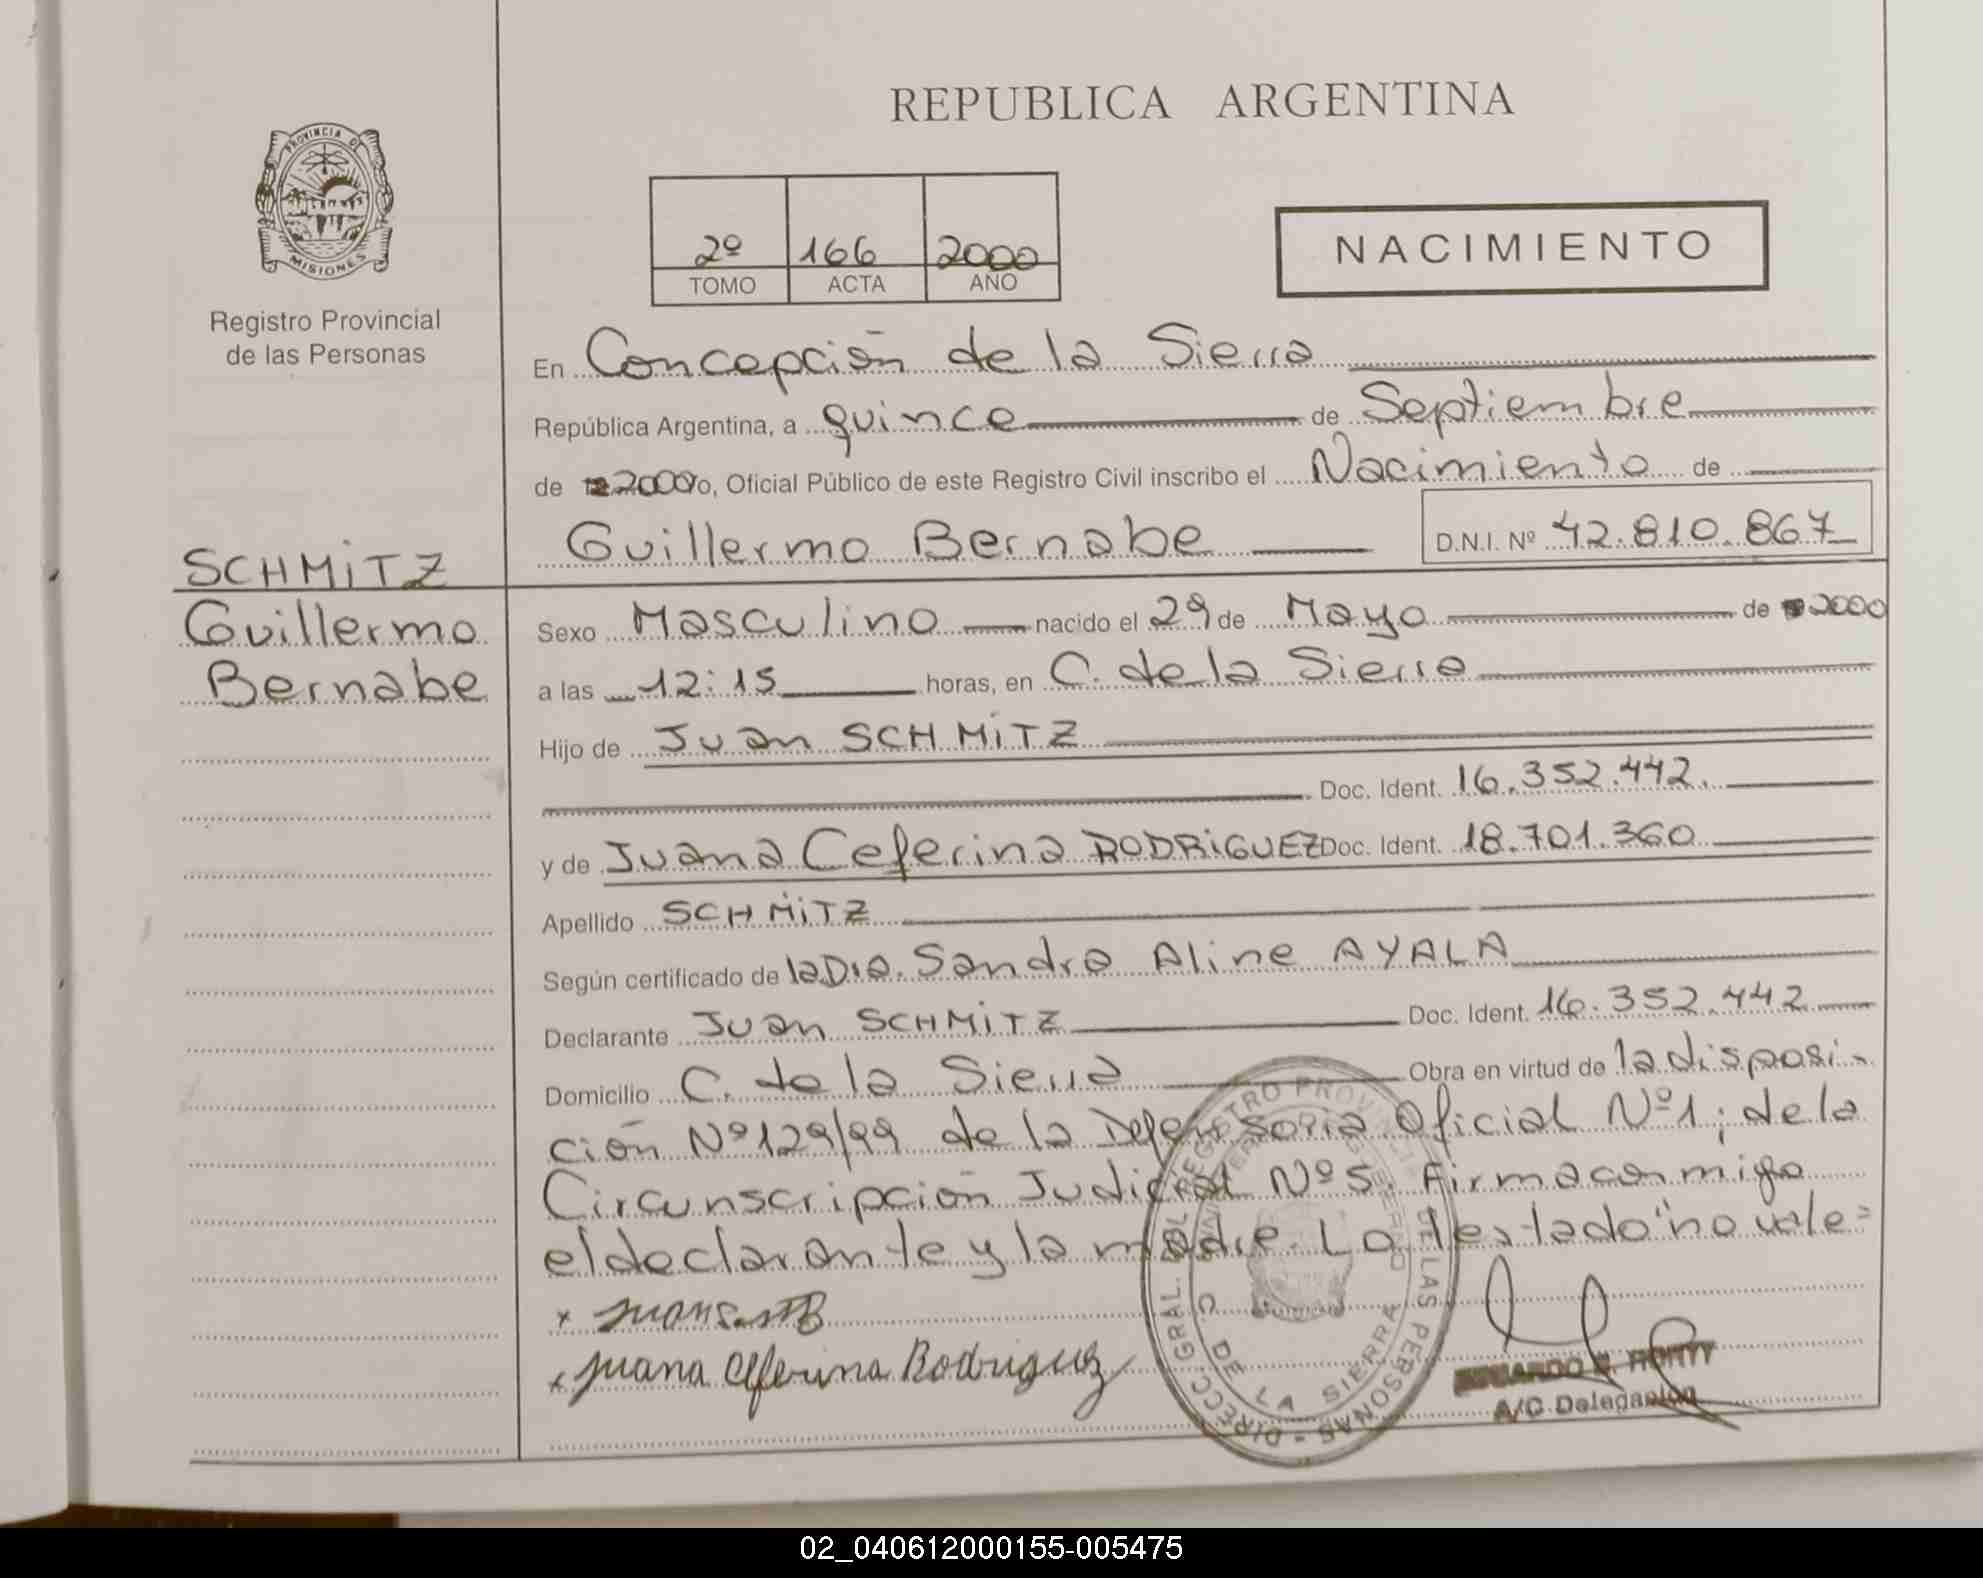 REPUBLICA ARGENTINA
PROVINCIA DE MISIONES
Registro Provincial
de las Personas
2º 166 2000
TOMO ACTA AÑO
NACIMIENTO
En Concepción de la Sierra
República Argentina, a quince de Septiembre
de 2000, Oficial Público de este Registro Civil inscribo el Nacimiento de
Guillermo Bernabe D.N.I. Nº 42.810.867
SCHMiTZ
Guillermo
Bernabe
Sexo Masculino nacido el 29 de Mayo de 2000
a las 12:15 horas, en C. de la Sierra
Hijo de Juan SCHMiTZ
Doc. Ident. 16.352.442.
y de Juana Ceferina RODRiGUEZ Doc. Ident. 18.701.360
Apellido SCHMiTZ
Según certificado de la Dra. Sandra Aline AYALA
Declarante Juan SCHMiTZ Doc. Ident. 16.352.442
Domicilio C. de la Sierra Obra en virtud de la disposi-
ción Nº 129/99 de la Defensoria Oficial Nº1; de la
Circunscripción Judicial Nº5. Firma con migo
el declarante y la madre. Lo testado "no vale"
x
x Juana Ceferina Rodriguez
DIRECC. GRAL. DEL REGISTRO PROVINCIAL DE LAS PERSONAS
C. DE LA SIERRA
A/C Delegación
02_040612000155-005475